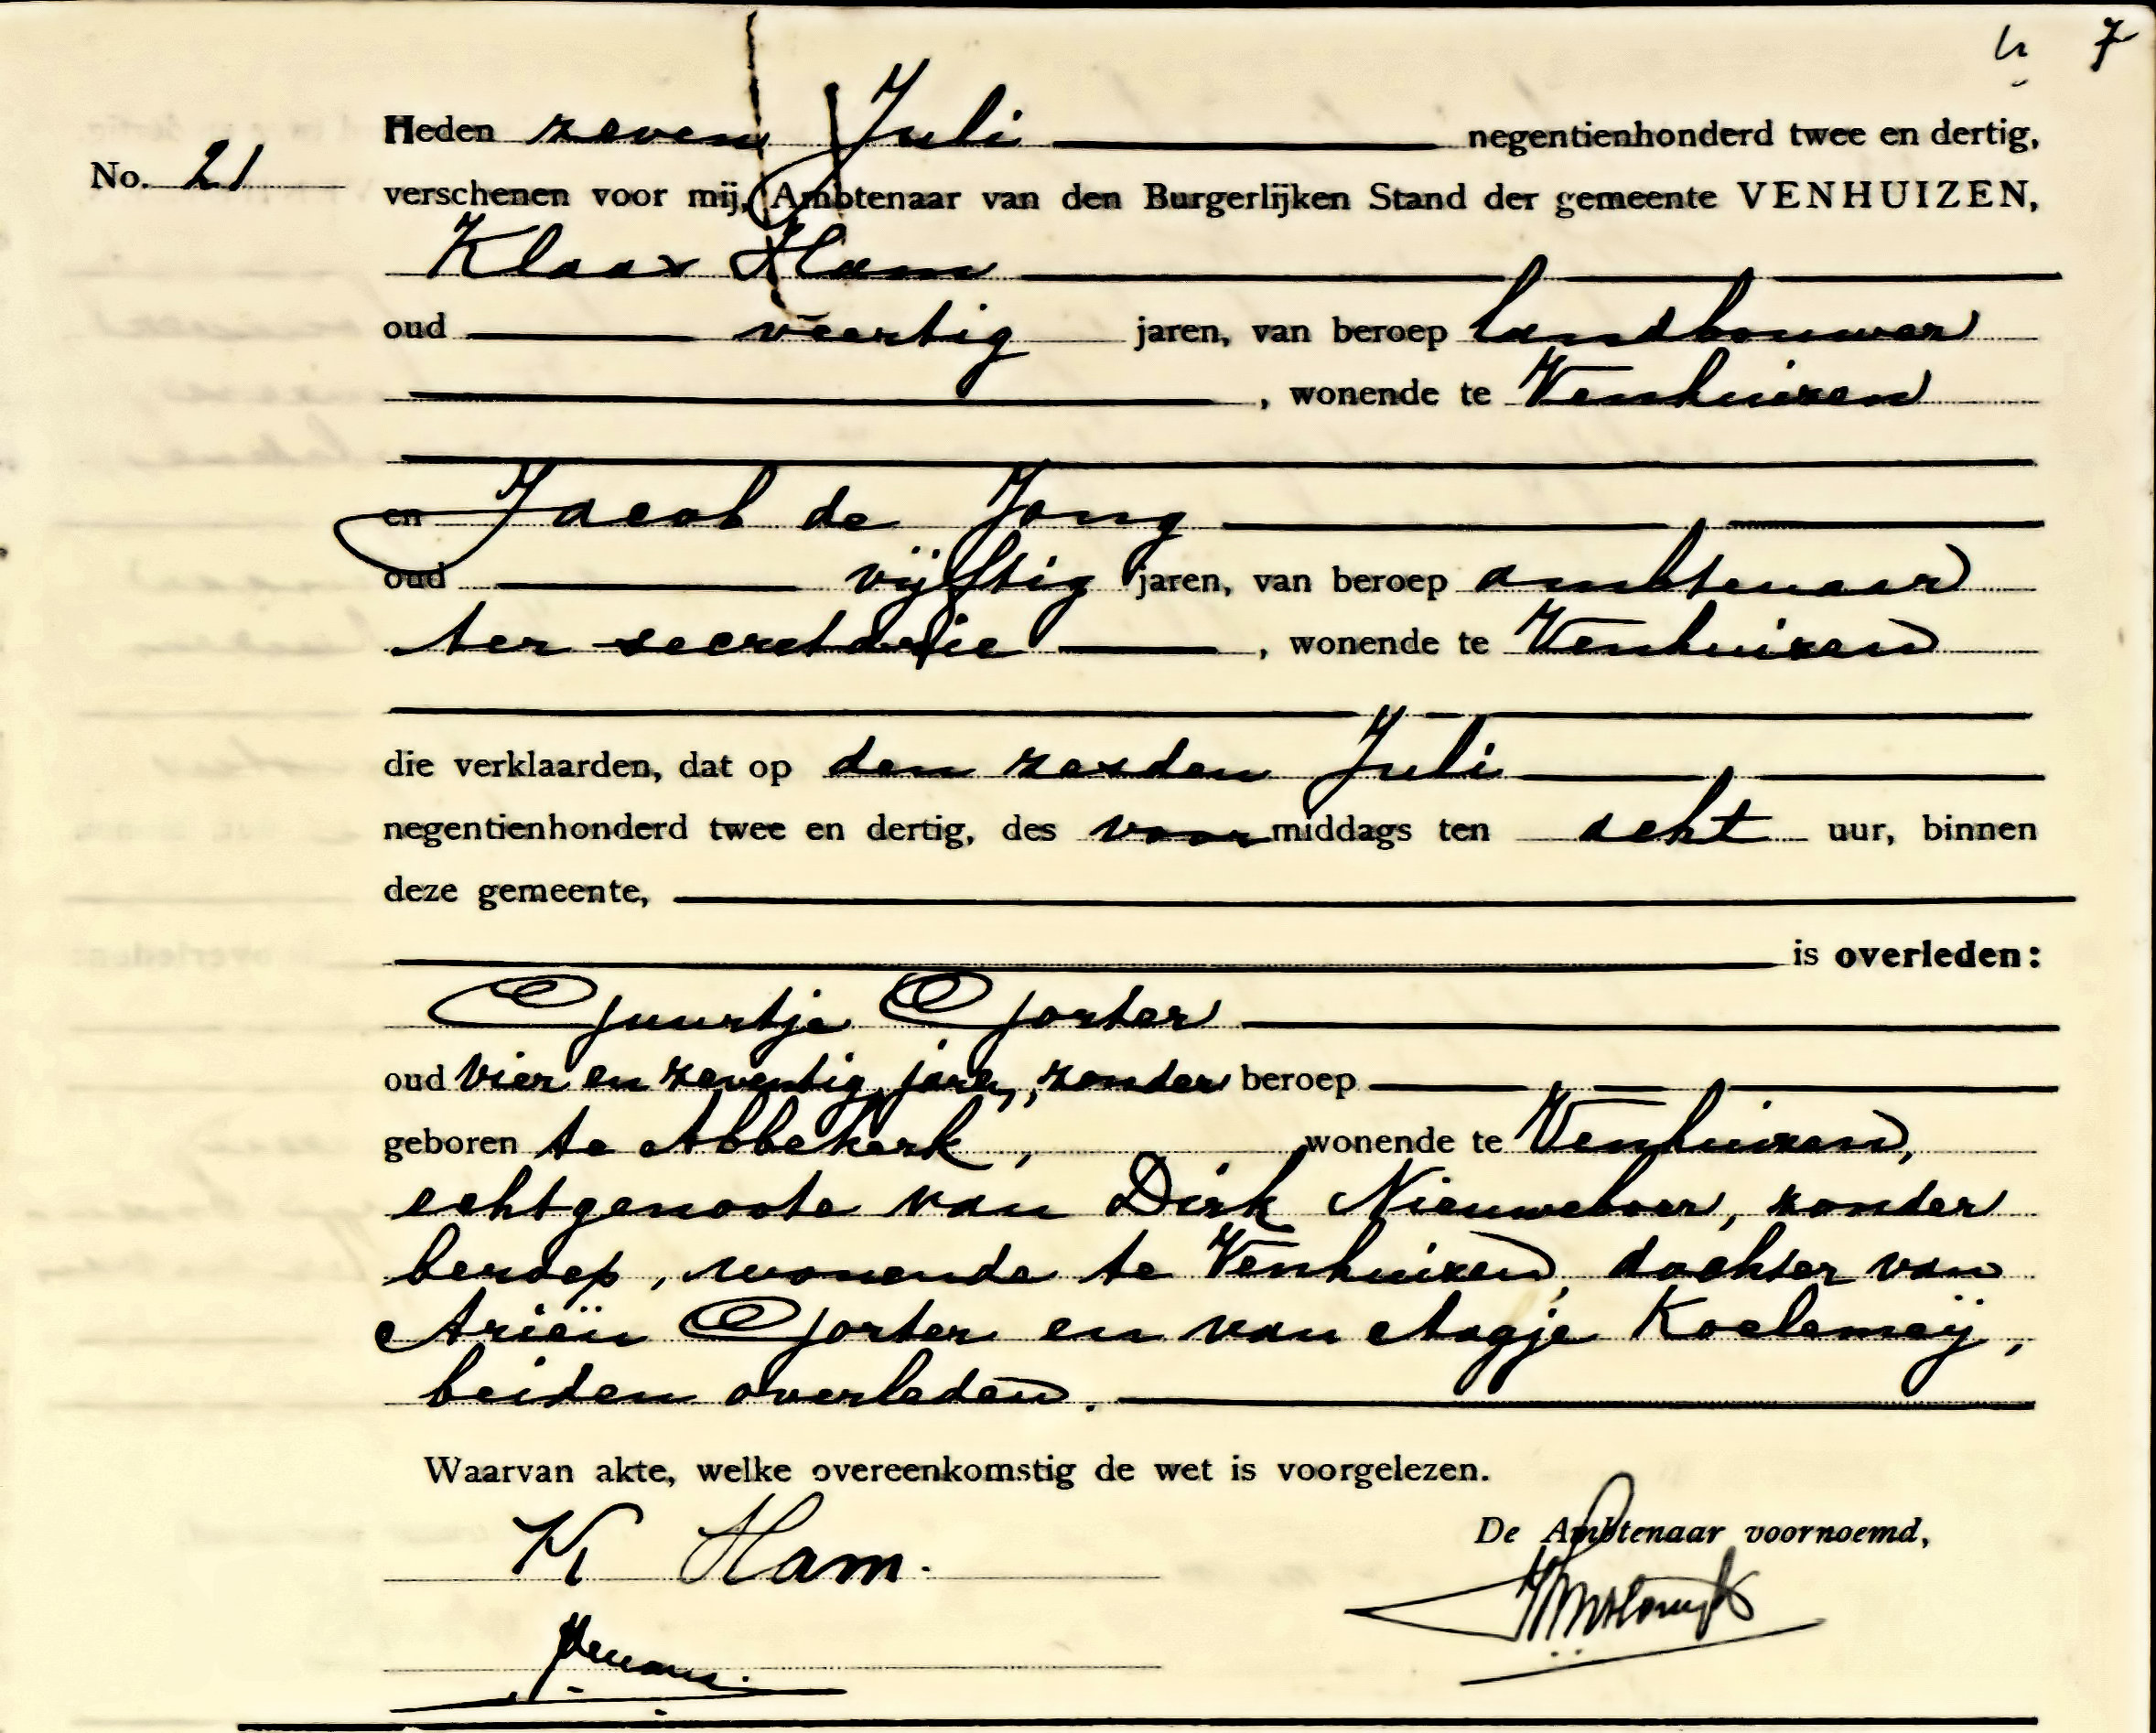 7
Heden zeven Juli negentienhonderd twee en dertig,
No. 21
verschenen voor mij, Ambtenaar van den Burgerlijken Stand der gemeente VENHUIZEN,
Klaas Ham
oud veertig jaren, van beroep landbouwer
, wonende te Venhuizen
en Jacob de Jong
oud vijftig jaren, van beroep ambtenaar
ter secretarie , wonende te Venhuizen
die verklaarden, dat op den zesden Juli
negentienhonderd twee en dertig, des voormiddags ten acht uur, binnen
deze gemeente,
is overleden:
Guurtje Gorter
oud vier en zeventig jaren, zonder beroep
geboren te Abbekerk, wonende te Venhuizen,
echtgenoote van Dirk Nieuweboer, zonder
beroep, wonende te Venhuizen, dochter van
Ariën Gorter en van Aagje Koelemeij,
beiden overleden.
Waarvan akte, welke overeenkomstig de wet is voorgelezen.
De Ambtenaar voornoemd,
K Ham.